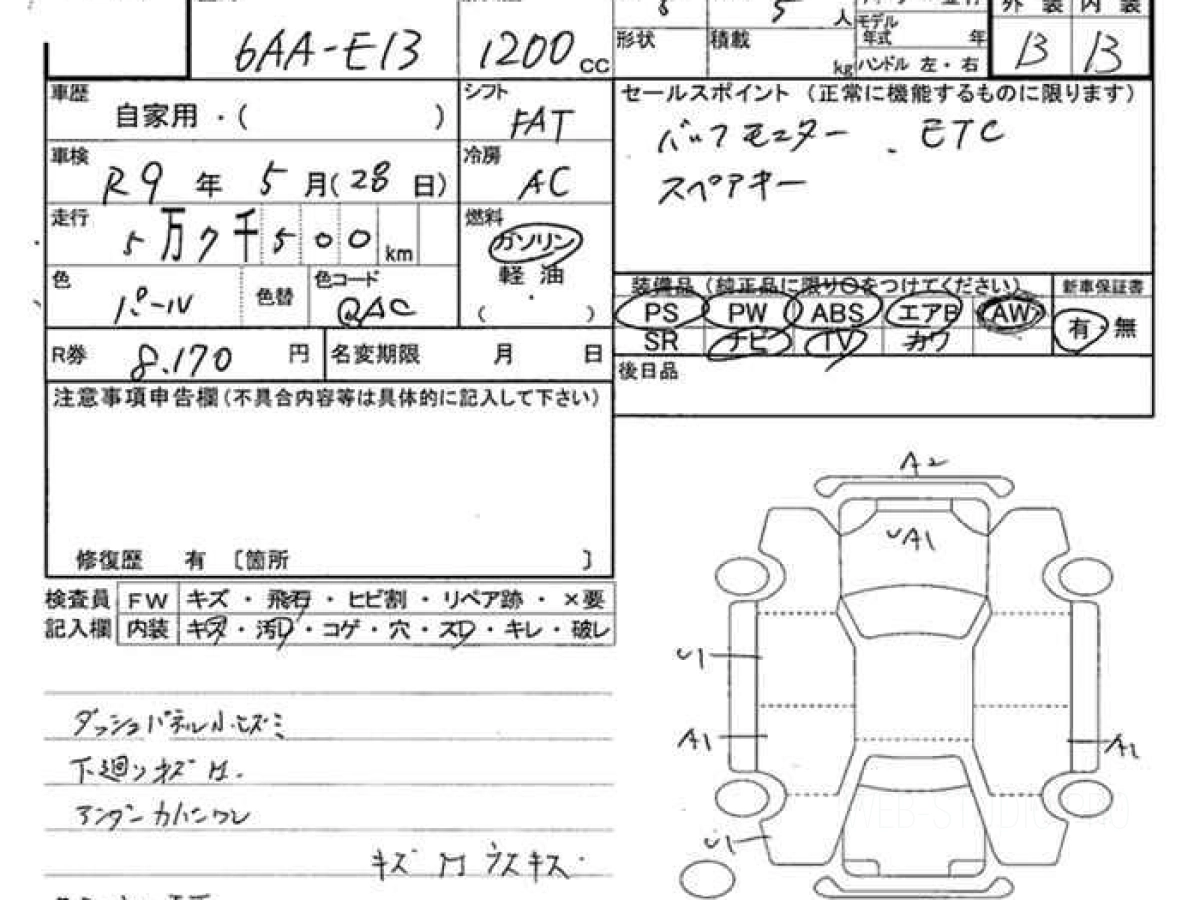 6AA-E13
1200 cc
人
モデル
年式 年
形状
積載
kg
ハンドル 左・右
外装 内装
B B
車歴
自家用 ・( )
シフト
FAT
車検
R9 年 5 月(28 日)
冷房
AC
走行
5万7千500 km
燃料
ガソリン
軽油
・
( )
色
パール
色替
色コード
QAC
R券 8.170 円
名変期限 月 日
セールスポイント (正常に機能するものに限ります)
バックモニター . ETC
スペアキー
装備品 (純正品に限り○をつけてください)
新車保証書
PS PW ABS エアB AW
有・無
SR ナビ TV カワ
後日品
注意事項申告欄(不具合内容等は具体的に記入して下さい)
修復歴 有 〔箇所 〕
検査員 FW キズ・飛石・ヒビ割・リペア跡・×要
記入欄 内装 キズ・汚・コゲ・穴・ス・キレ・破レ
ダッシュパネル小ヒズミ
下廻りキズ
アンダーカバーワレ
キズ
A2
UA1
U1
A1
A1
U1